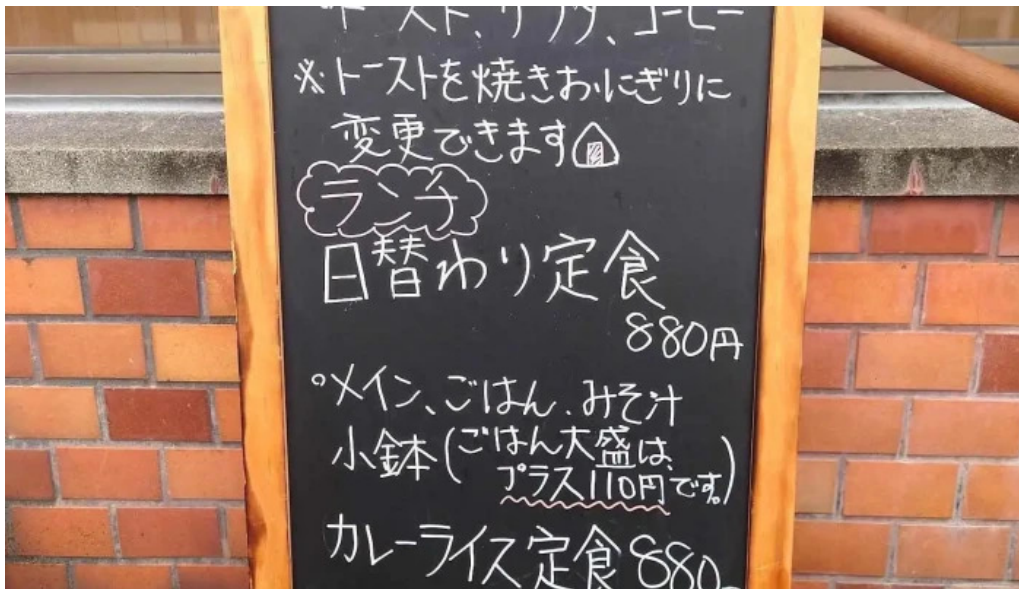 ・トースト、サラダ、コーヒー
※トーストを焼きおにぎりに
変更できます
ランチ
日替わり定食
880円
○メイン、ごはん、みそ汁
小鉢(ごはん大盛は、
プラス110円です。)
カレーライス定食 880